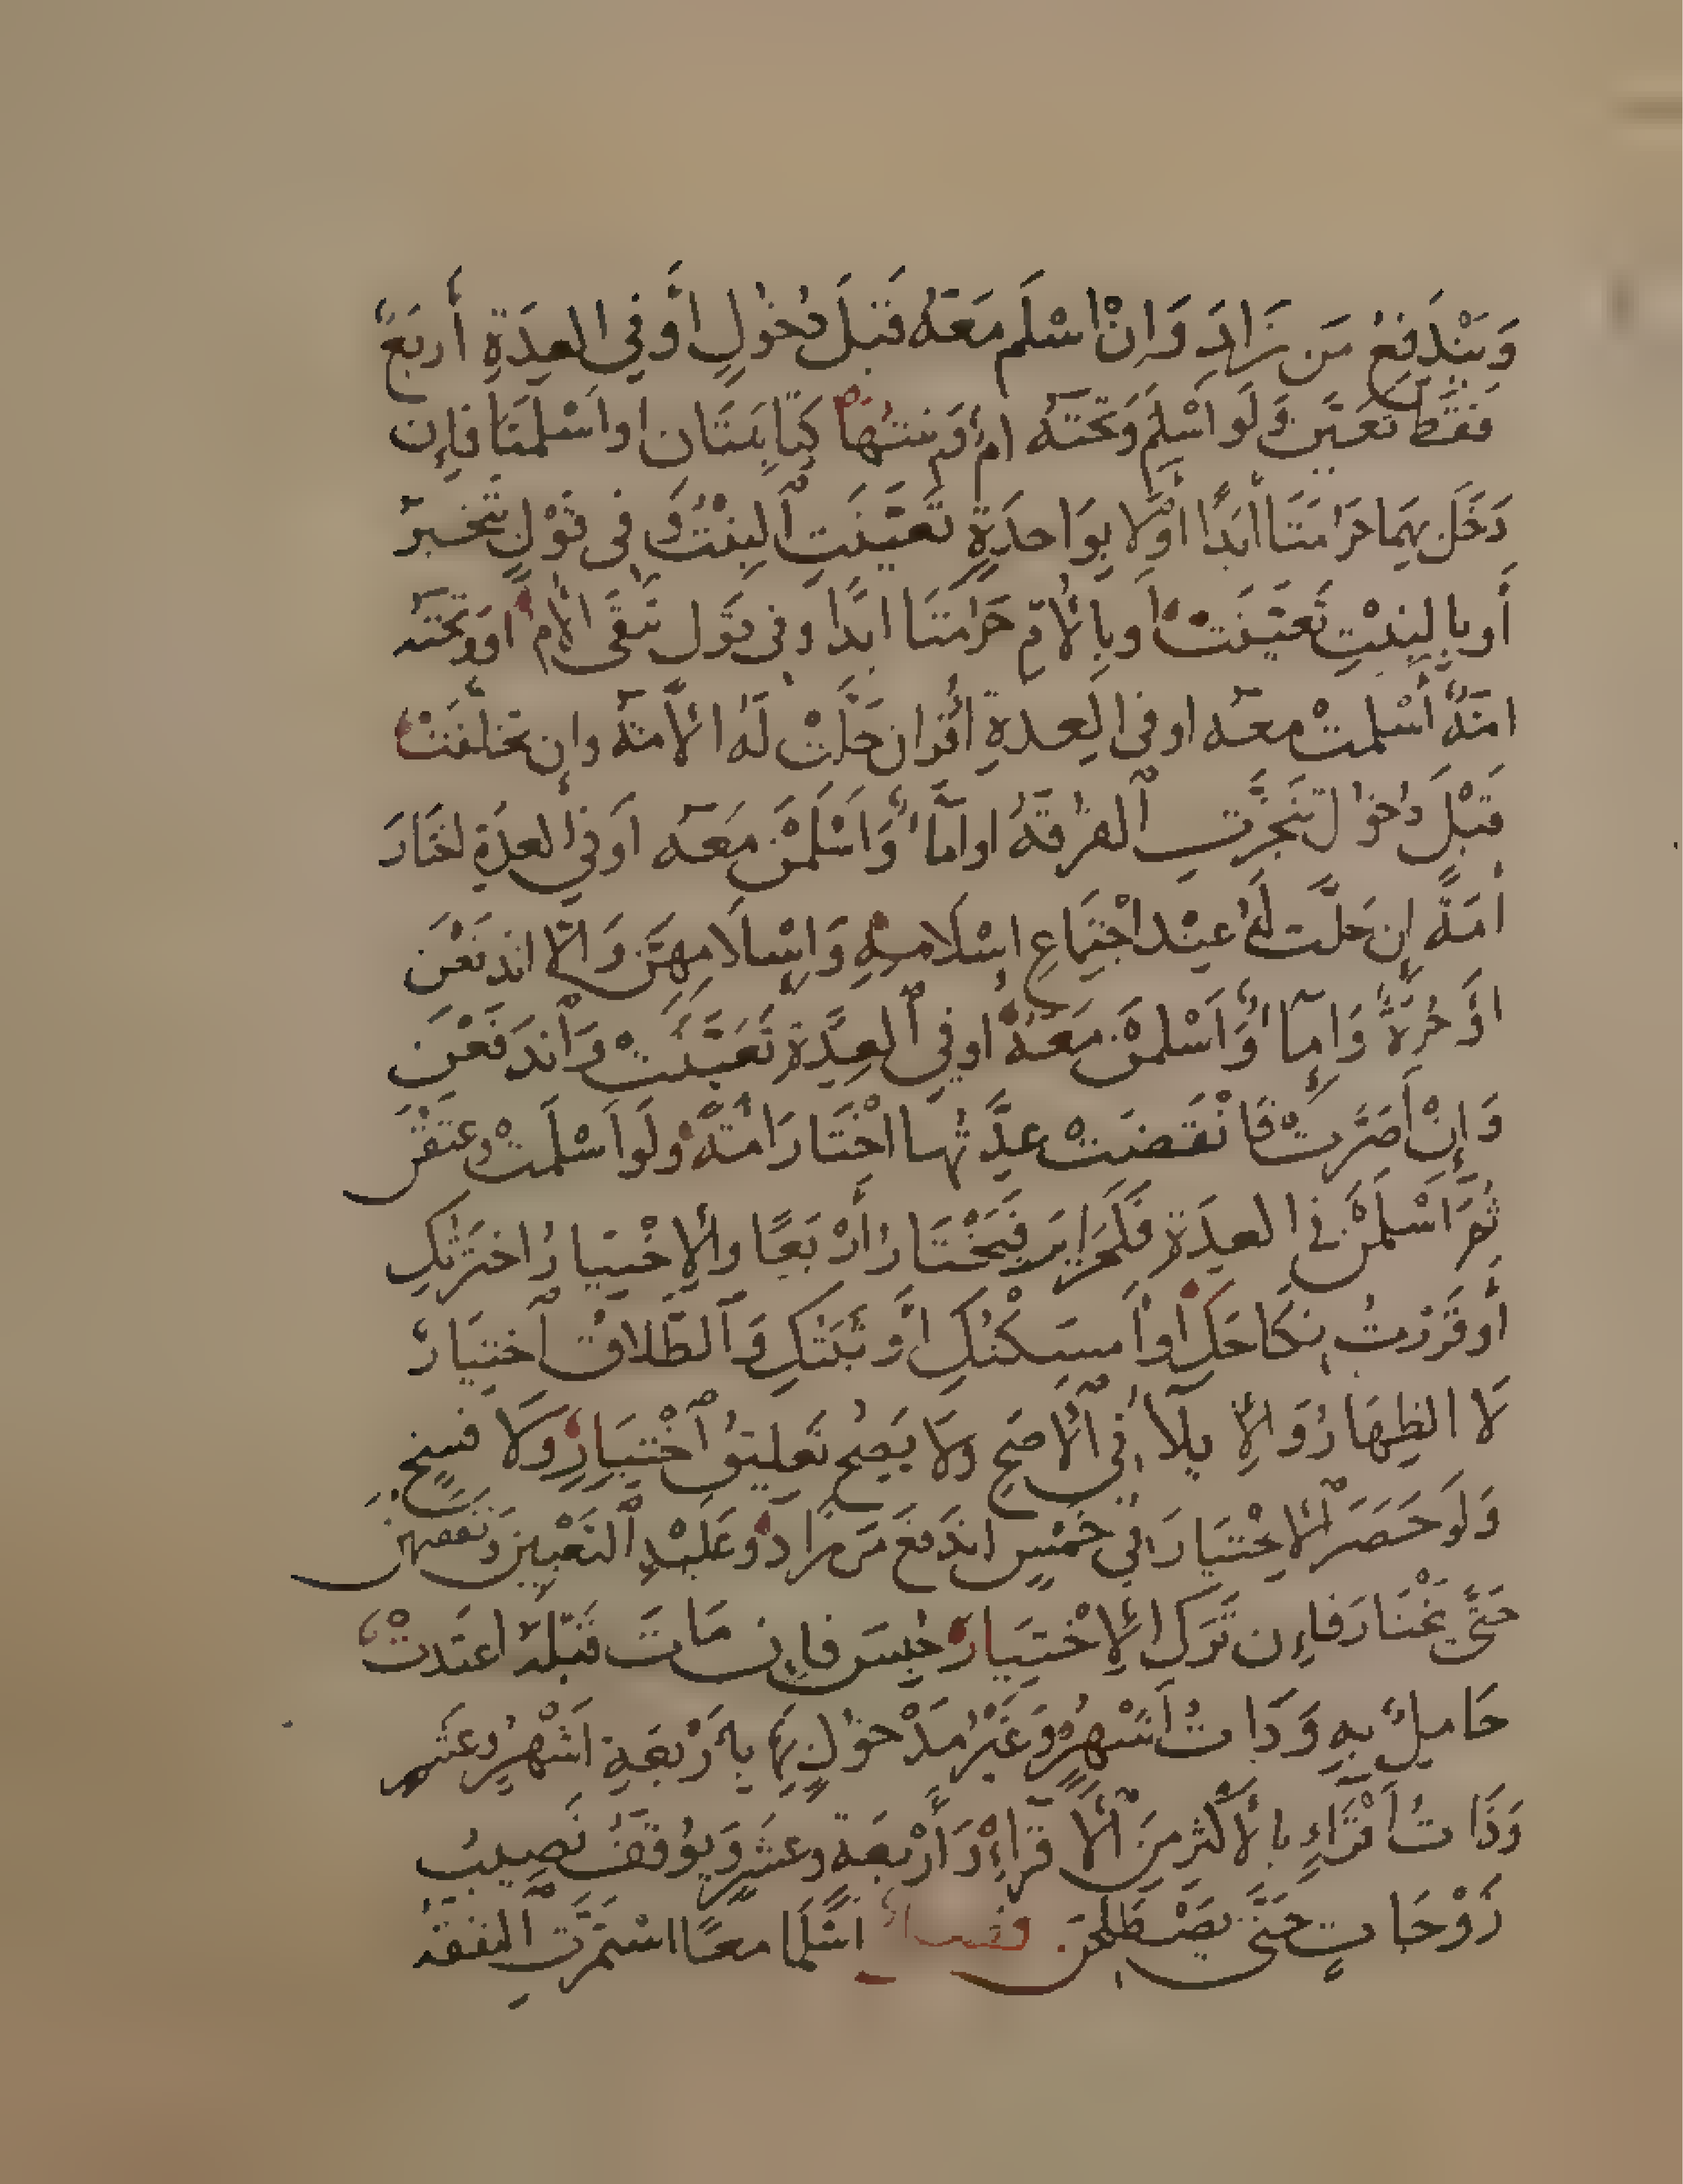 وَيَنْدَفِعُ مَن زَادَ وَاِنْ اسْلَم مَعَهُ قَبْلَ دُخُولٍ أَوْ في العِدَةِ أَربَعٌ
فَقَط تَعَيَّن وَلَو اسْلَمَ وَتَحْتَهُ ام وَبنتُهَا كِتَابِيَتَان او اَسْلَمَتَا فإِن
دَخَلَ بِهِمَا حَرُامَتَا ابَدًا أَوْلا بِوَاحِدَةٍ تَعَيَّنَتِ الْبِنْتُ وَ فى قَوْلٍ يَتَخَيَّر
أَو بِالبِنْتِ تَعَيَّنَتْ او بِالأُمِّ حَرُامَتَا ابَدًا وفى قَوْلٍ تَبْقَى الأُم اَوْ وَتَحْتَه
امَةٌ أَسْلَمتْ معَه او فى العِدةِ أقران حَلَّتْ لَهُ الأَمَة وإِن تخلفَتْ
قَبْلَ دُخُولٍ تَنَجَّزَتِ الفُرْقَةُ او امَآءٌ وَاَسْلَمْنَ مَعَه اَوْ فى العِدَةِ اختَارَ
أَمَةً إن حَلَّت لَهُ عِنْد اجْتِمَاعِ اسْلَامِهِ وَاِسْلَامِهِنَّ وَاِلَّا اندَفَعْن
اَوْ حُرَّةٌ وَاِمَآءٌ وَاَسْلَمْنَ مَعَهُ او في الْعِدَّةِ تَعَيَّنَتْ وَانْدَفَعْنَ
وَإِنْ أَصَرَّتْ فَانْقَضَتْ عِدَّتُهَا اخْتَارَ امَةً ولَو اَسْلَمَتْ وعَتَقْنَ
ثُمَّ اَسْلَمْنَ في العِدَةِ فَكَحَرَايِرَ فَيَخْتَارُ أَرْبَعًا والاِخْتِيَارُ اخْتَرْتُكِ
أَوْ قَرَّرْتُ نِكَاحَكِ او اَمْسَكْتُكِ اوْ ثَبَّتُكِ وَالطَّلاقُ اخْتِيَارٌ
لا الظِهَارُ وَالإِيلآءُ فِى الأَصَحِ وَلا يَصِحُ تَعليقُ اخْتِيَارٍ وَلا فَسخٍ
وَلَو حَصَرَ الاِخْتِيَارَ فِي خَمْسٍ اندَفَعَ مَن زَادَ وعَلَيْهِ التَّعْيِينُ وَنفقتهن
حَتَّى يَخْتَارَ فإِن تَرَكَ الاِخْتِيَارَ حُبِسَ فاِن مَاتَ قَبْلَهُ اعتَدتْ
حَامِلٌ بِهِ وَذَاتُ اَشْهُرٍ وَغَيْرُ مَدْخُولٍ بِهَا بِأَرْبَعَةِ اَشْهُرٍ وعَشْرٍ
وَذَاتُ اَقْرَاءٍ بِالأَكْثَرِ مِنَ الأَقْرَاءِ وَأَرْبَعَةٍ وعَشْرٍ وَيُوقَفُ نَصِيبُ
زَوْجَاتٍ حَتَّى يَصْطَلِحْنَ فصل اَسْلَمَا مَعًا اسْتَمَرَّتِ النَفَقَةُ